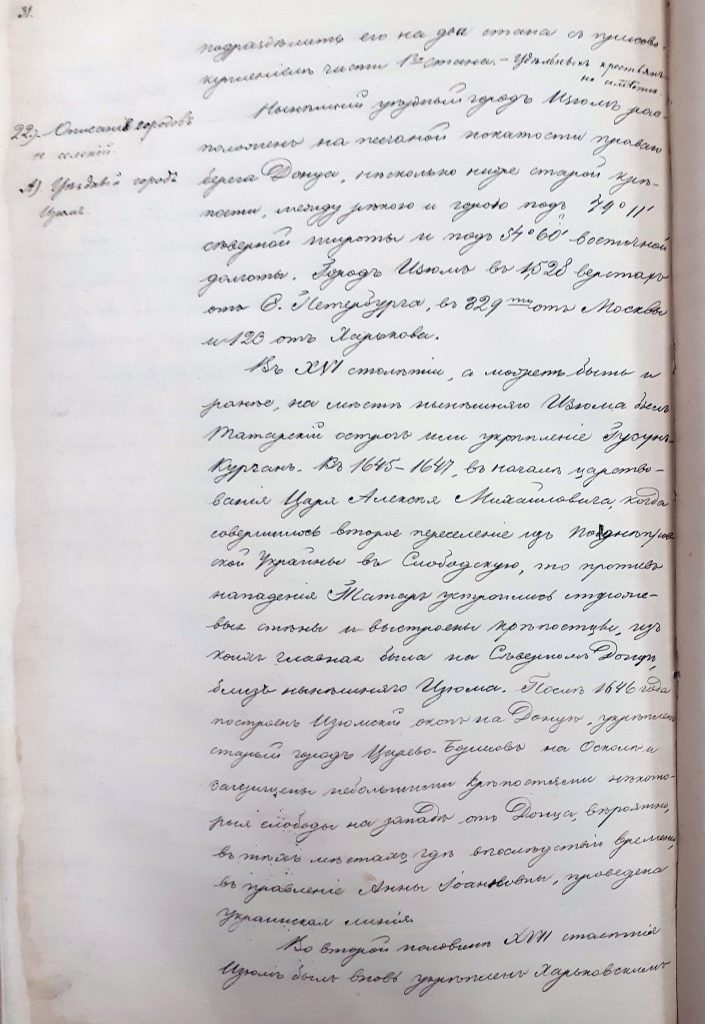 31.
подраздѣлить его на два стана съ присово-
купленіемъ части 1го стана. - Удѣльныхъ крестьянъ
не имѣется.
22). Описаніе городовъ
и селеній.
А) Уѣздный городъ
Изюмъ.
Нынѣшній уѣздный городъ Изюмъ рас-
положенъ на песчаной покатости праваго
берега Донца, нѣсколько ниже старой крѣ-
пости, между рѣкою и горою подъ 79° 11'
сѣверной широты и подъ 54° 60' восточной
долготы. Городъ Изюмъ въ 1,528 верстахъ
отъ С. Петербурга, въ 829ти отъ Москвы
и 123 отъ Харькова.
Въ XVI столѣтіи, а можетъ быть и
ранѣе, на мѣстѣ нынѣшняго Изюма былъ
Татарскій острогъ или укрѣпленіе Гусунъ-
Курганъ. Въ 1645-1647, въ началѣ царство-
ванія Царя Алексѣя Михайловича, когда
совершилось второе переселеніе изъ Поднѣпров
ской Украйны въ Слободскую, то противъ
нападенія Татаръ устроились стороже-
выя стѣны и выстроены крѣпостцы, изъ
коихъ главная была на Сѣверномъ Донцѣ,
близъ нынѣшняго Изюма. Послѣ 1646 года
построенъ Изюмскій окопъ на Донцѣ, укрѣпленъ
старый городъ Царево-Борисовъ на Осколѣ и
защищены небольшими крѣпостями нѣкото-
рыя слободы на западъ отъ Донца, вѣроятно,
въ тѣхъ мѣстахъ, гдѣ впослѣдствіи времени,
въ правленіе Анны Іоанновны, проведена
украинская линія.
Во второй половинѣ XVII столѣтія
Изюмъ былъ вновь укрѣпленъ Харьковскимъ